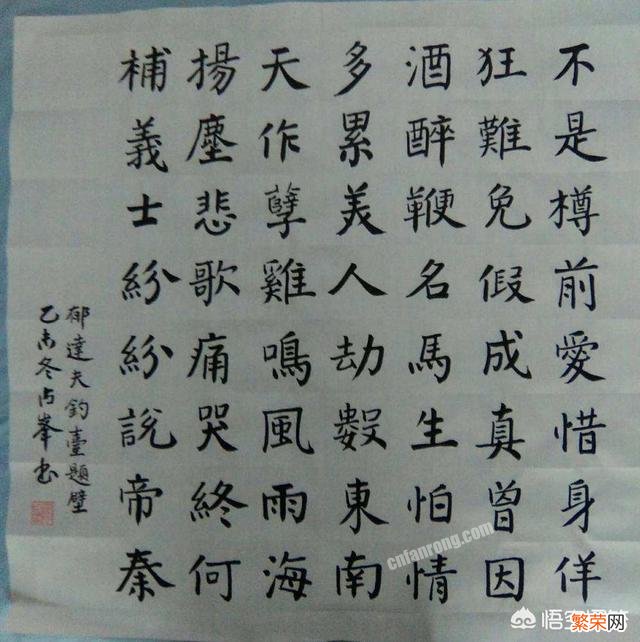 不是樽前愛惜身佯
狂難免假成真曾因
酒醉鞭名馬生怕情
多累美人劫數東南
天作孽雞鳴風雨海
揚塵悲歌痛哭終何
補義士紛紛說帝秦
郁達夫釣臺題壁
乙未冬占峯书
cnfanrong.com
悟空
繁荣网